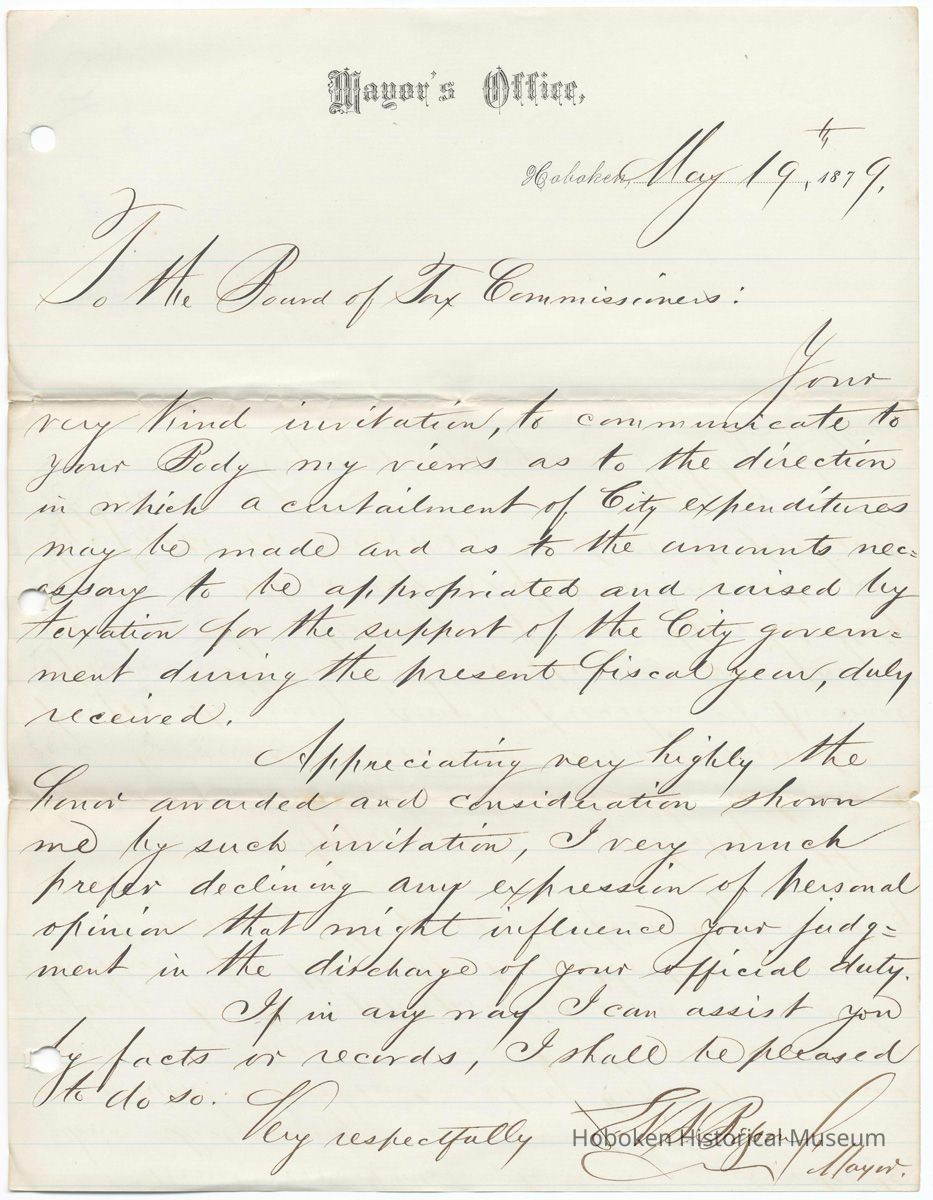 Mayor's Office,
Hoboken, May 19th, 1879.
To the Board of Tax Commissioners:
Your
very kind invitation, to communicate to
your Body my views as to the direction
in which a curtailment of City expenditures
may be made and as to the amounts nec=
essary to be appropriated and raised by
taxation for the support of the City govern=
ment during the present fiscal year, duly
received.
Appreciating very highly the
honor awarded and consideration shown
me by such invitation, I very much
prefer declining any expression of personal
opinion that might influence your judg=
ment in the discharge of your official duty.
If in any way I can assist you
by facts or records, I shall be pleased
to do so.
Very respectfully
Mayor.
Hoboken Historical Museum